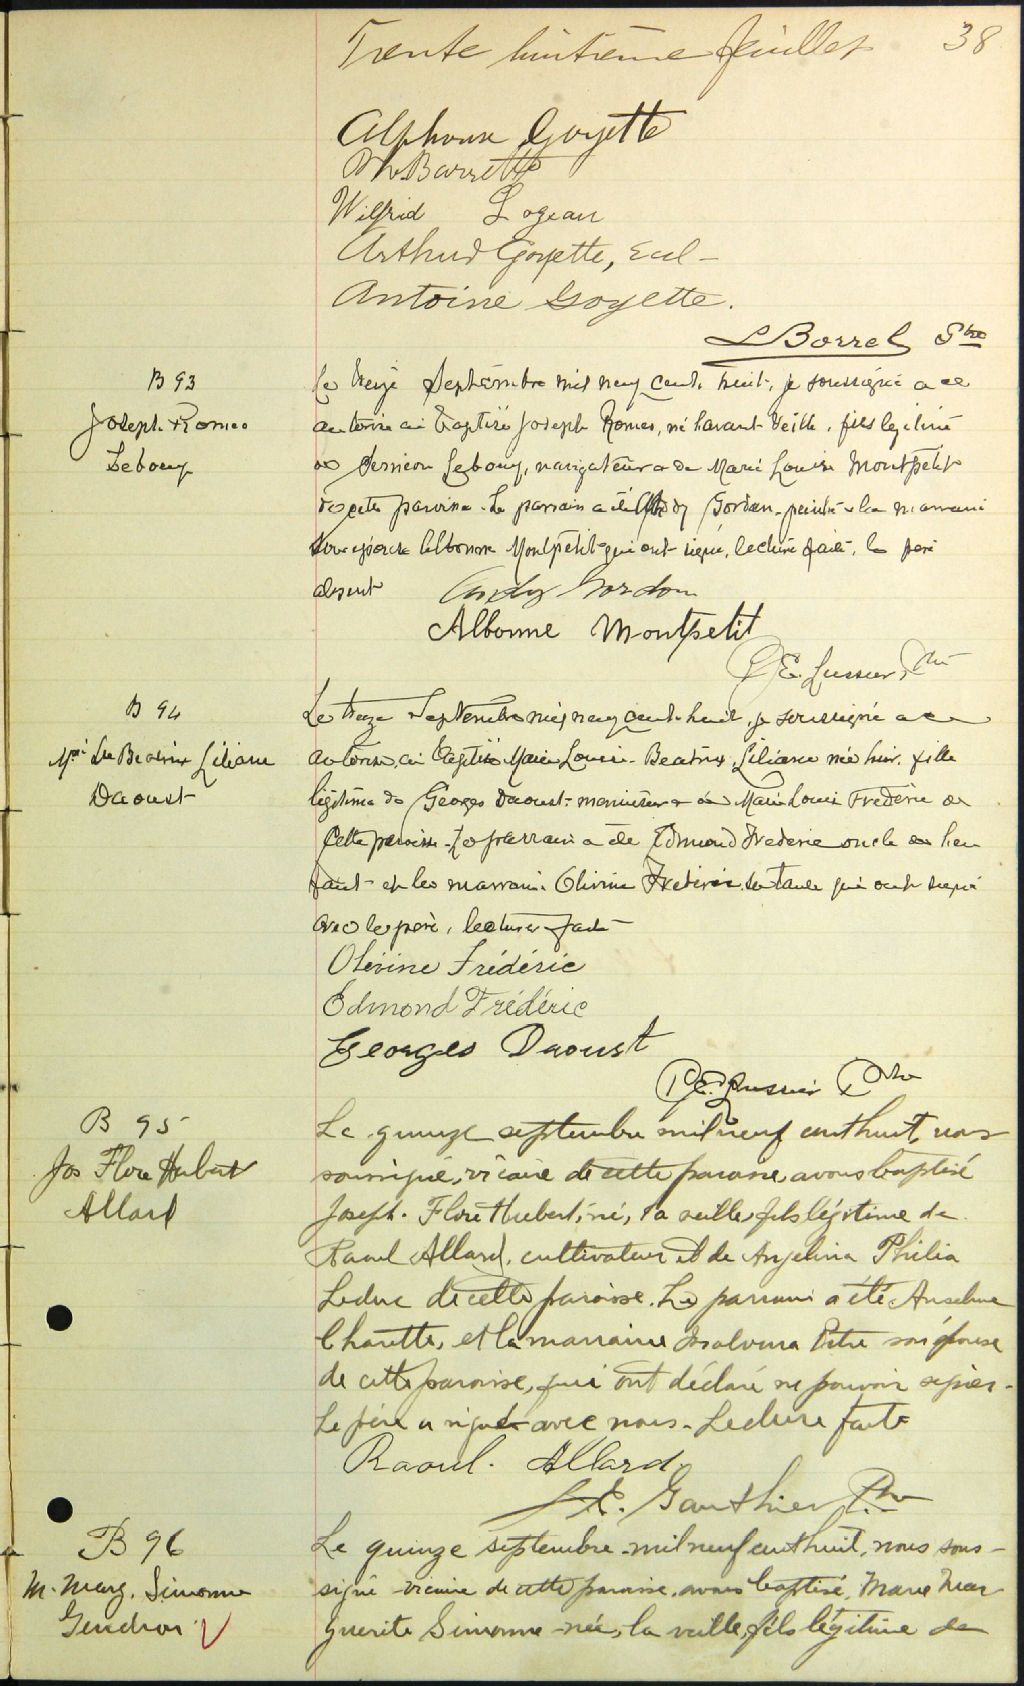 Trente huitième feuillet 38
Alphonse Goyette
Barrette
Wilfrid Lozeau
Arthur Goyette, Eccl -
Antoine Goyette.
Borrel Ptre
B 93
Joseph Romeo
Leboeuf
Le treize Septembre mil neuf cent huit, je soussigné
autorisé ai baptisé Joseph Romeo, né l'avant veille, fils légitime
de Leboeuf, navigateur & de Marie Louise Montpetit
de cette paroisse. Le parrain a été Andy Gordon, peintre & la marraine
son épouse Albonne Montpetit qui ont signé, lecture faite, le père
absent
Andy Gordon
Albonne Montpetit
E Lussier, Ptre
B 94
Mie Lse Beatrix Liliane
Daoust
Le treize Septembre mil neuf cent huit, je soussigné
autorisé, ai baptisé Marie Louise Beatrix Liliane née hier, fille
légitime de Georges Daoust menuisier & de Marie Louise Frédéric de
cette paroisse. Le parrain a été Edmond Frederic oncle de l'en-
fant et la marraine Olivine Frédéric, sa tante qui ont signé
avec le père, lecture faite
Olivine Frédéric
Edmond Frédéric
Georges Daoust
P E. Lussier Ptre
B 95
Jos Flore Hubert
Allard
Le quinze septembre mil neuf cent huit, nous
soussigné, vicaire de cette paroisse, avons baptisé
Joseph Flore Hubert, né, la veille, fils légitime de
Raoul Allard, cultivateur et de Angelina Philia
Leduc de cette paroisse. Le parrain a été Anselme
Charette, et la marraine Malvina son épouse
de cette paroisse, qui ont déclaré ne pouvoir signer.
Le père a signé avec nous. Lecture faite
Raoul Allard.
Gauthier Ptre
B 96
M. Marg. Simonne
Gendron
Le quinze septembre mil neuf cent huit, nous sous-
signé vicaire de cette paroisse, avons baptisé, Marie Mar-
guerite Simonne née, la veille, fils légitime de